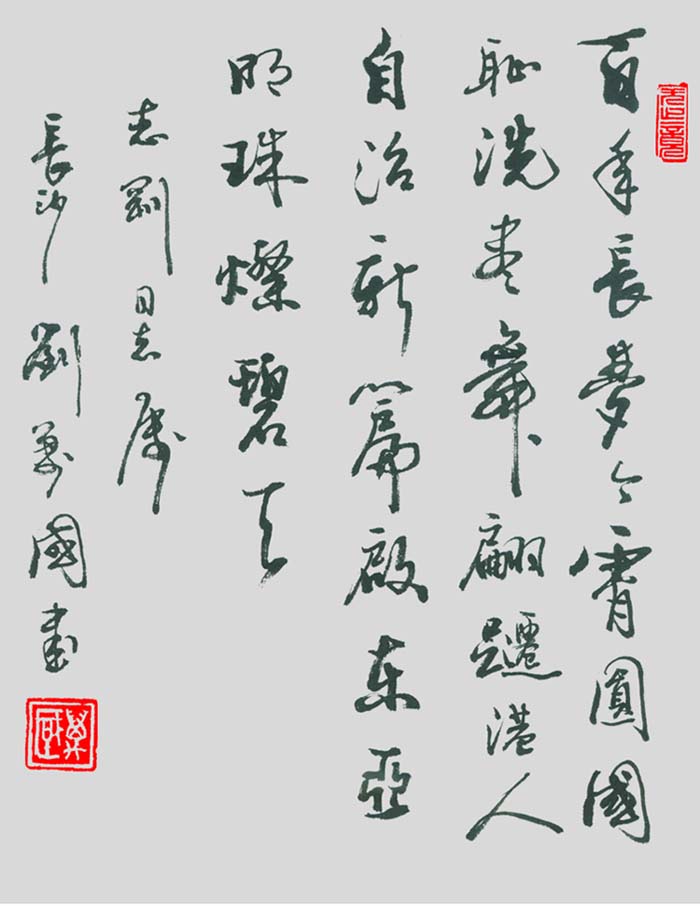 百年長夢今宵圓國
恥洗盡舞翩躚港人
自治新篇啟东亞
明珠燦碧天
志剛同志属
長沙劉萬國书
萬國